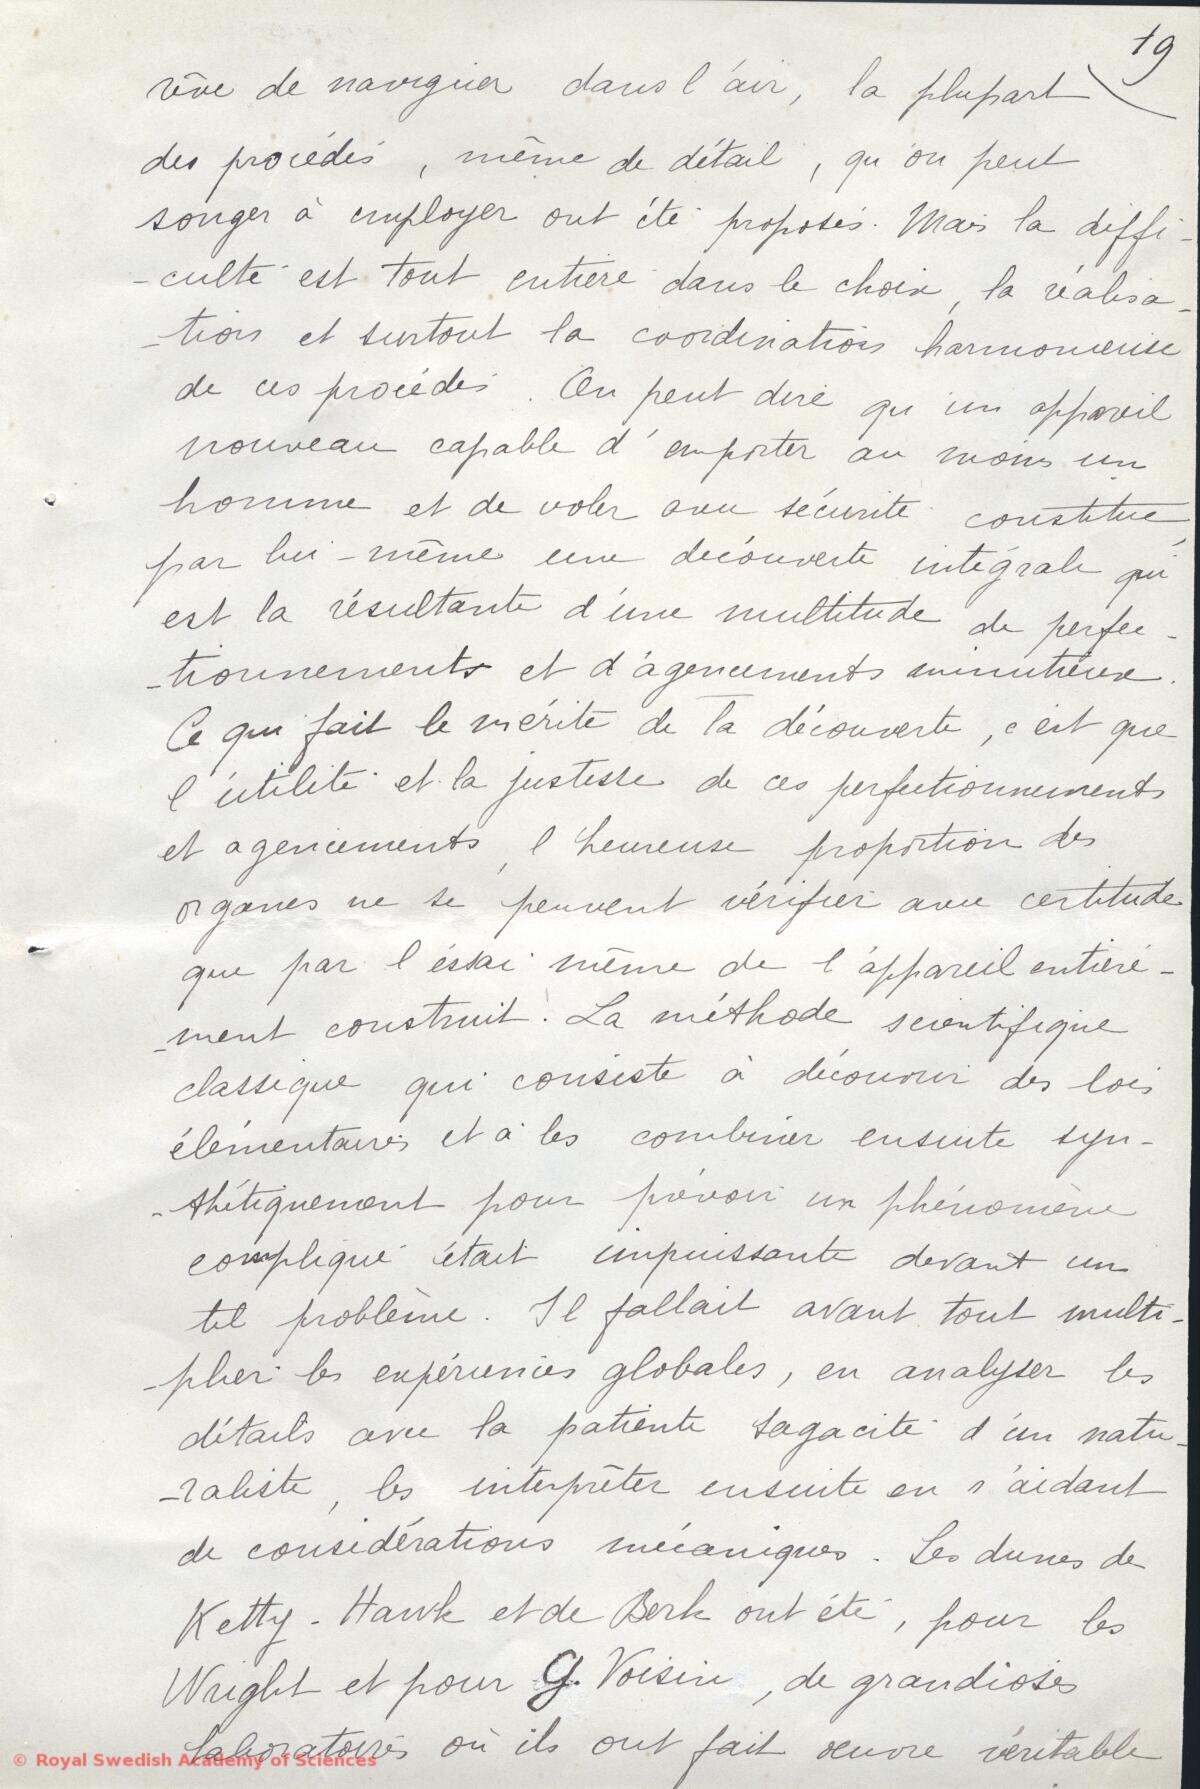 19
rêve de naviguer dans l'air, la plupart
des procédés, même de détail, qu'on peut
songer à employer ont été proposés. Mais la diffi-
-culté est tout entière dans le choix, la réalisa-
-tion et surtout la coordination harmonieuse
de ces procédés. On peut dire qu'un appareil
nouveau capable d'emporter au moins un
homme et de voler avec sécurité constitue,
par lui-même une découverte intégrale qui
est la résultante d'une multitude de perfec-
-tionnements et d'agencements minutieux.
Ce qui fait le mérite de la découverte, c'est que
l'utilité et la justesse de ces perfectionnements
et agencements, l'heureuse proportion des
organes ne se peuvent vérifier avec certitude
que par l'essai même de l'appareil entière-
-ment construit. La méthode scientifique
classique qui consiste à découvrir des lois
élémentaires et à les combiner ensuite syn-
-thétiquement pour prévoir un phénomène
compliqué était impuissante devant un
tel problème. Il fallait avant tout multi-
-plier les expériences globales, en analyser les
détails avec la patiente sagacité d'un natu-
-raliste, les interpréter ensuite en s'aidant
de considérations mécaniques. Les dunes de
Ketty-Hawk et de Berk ont été, pour les
Wright et pour G. Voisin, de grandioses
laboratoires où ils ont fait œuvre véritable
© Royal Swedish Academy of Sciences